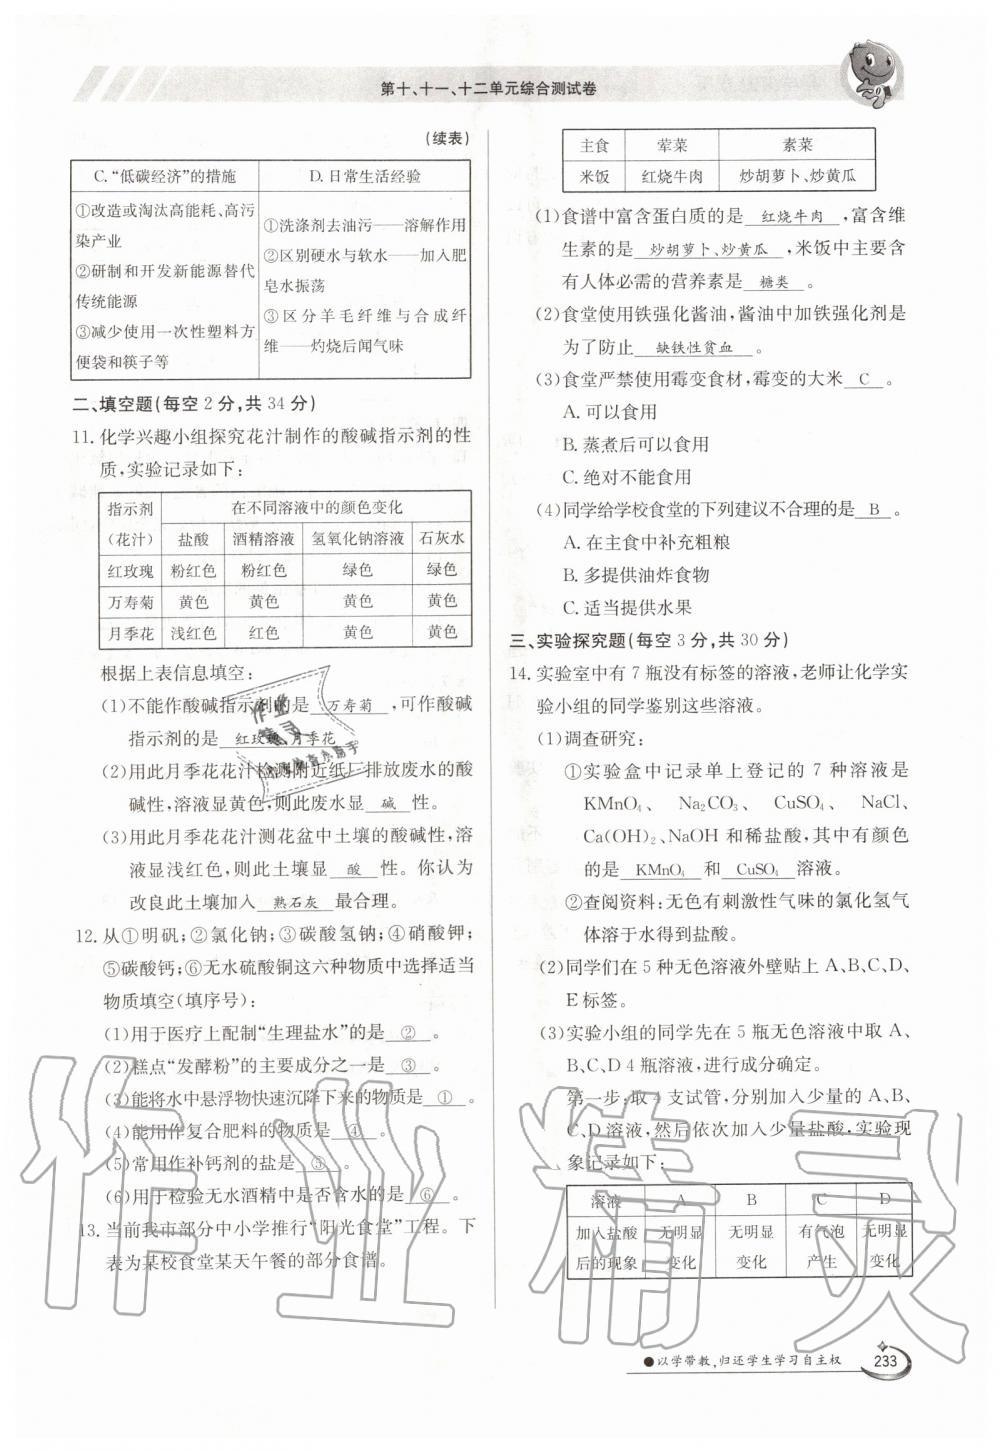 第十、十一、十二单元综合测试卷
(续表)
C.“低碳经济”的措施 D.日常生活经验
①改造或淘汰高能耗、高污
染产业
②研制和开发新能源替代
传统能源
③减少使用一次性塑料方
便袋和筷子等
①洗涤剂去油污——溶解作用
②区别硬水与软水——加入肥
皂水振荡
③区分羊毛纤维与合成纤
维——灼烧后闻气味
二、填空题(每空2分,共34分)
11.化学兴趣小组探究花汁制作的酸碱指示剂的性
质,实验记录如下:
指示剂 在不同溶液中的颜色变化
(花汁) 盐酸 酒精溶液 氢氧化钠溶液 石灰水
红玫瑰 粉红色 粉红色 绿色 绿色
万寿菊 黄色 黄色 黄色 黄色
月季花 浅红色 红色 黄色 黄色
根据上表信息填空:
(1)不能作酸碱指示剂的是 万寿菊 ,可作酸碱
指示剂的是 红玫瑰、月季花
(2)用此月季花花汁检测附近纸厂排放废水的酸
碱性,溶液显黄色,则此废水显 碱 性。
(3)用此月季花花汁测花盆中土壤的酸碱性,溶
液显浅红色,则此土壤显 酸 性。你认为
改良此土壤加入 熟石灰 最合理。
12.从①明矾;②氯化钠;③碳酸氢钠;④硝酸钾;
⑤碳酸钙;⑥无水硫酸铜这六种物质中选择适当
物质填空(填序号):
(1)用于医疗上配制“生理盐水”的是 ② 。
(2)糕点“发酵粉”的主要成分之一是 ③ 。
(3)能将水中悬浮物快速沉降下来的物质是 ① 。
(4)能用作复合肥料的物质是 ④ 。
(5)常用作补钙剂的盐是 ⑤ 。
(6)用于检验无水酒精中是否含水的是 ⑥ 。
13.当前我市部分中小学推行“阳光食堂”工程。下
表为某校食堂某天午餐的部分食谱。
主食 荤菜 素菜
米饭 红烧牛肉 炒胡萝卜、炒黄瓜
(1)食谱中富含蛋白质的是 红烧牛肉 ,富含维
生素的是 炒胡萝卜、炒黄瓜 ,米饭中主要含
有人体必需的营养素是 糖类 。
(2)食堂使用铁强化酱油,酱油中加铁强化剂是
为了防止 缺铁性贫血 。
(3)食堂严禁使用霉变食材,霉变的大米 C 。
A.可以食用
B.蒸煮后可以食用
C.绝对不能食用
(4)同学给学校食堂的下列建议不合理的是 B 。
A.在主食中补充粗粮
B.多提供油炸食物
C.适当提供水果
三、实验探究题(每空3分,共30分)
14.实验室中有7瓶没有标签的溶液,老师让化学实
验小组的同学鉴别这些溶液。
(1)调查研究:
①实验盒中记录单上登记的7种溶液是
KMnO₄、 Na₂CO₃、 CuSO₄、 NaCl、
Ca(OH)₂、NaOH和稀盐酸,其中有颜色
的是 KMnO₄ 和 CuSO₄ 溶液。
②查阅资料:无色有刺激性气味的氯化氢气
体溶于水得到盐酸。
(2)同学们在5种无色溶液外壁贴上A、B、C、D、
E标签。
(3)实验小组的同学先在5瓶无色溶液中取A、
B、C、D 4瓶溶液,进行成分确定。
第一步:取4支试管,分别加入少量的A、B、
C、D溶液,然后依次加入少量盐酸,实验现
象记录如下:
溶液 A B C D
加入盐酸 无明显 无明显 有气泡 无明显
后的现象 变化 变化 产生 变化
●以学带教,归还学生学习自主权 233
作业精灵